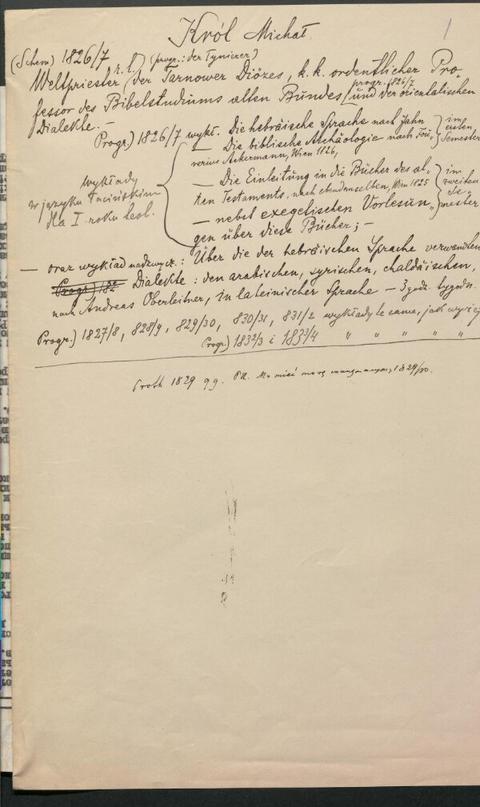 Król Michał
1
(Schem) 1826/7 r. l. (progr.: der Tyniecer)
Weltpriester der Tarnower Diözes, k.k. ordentlicher Pro-
fessor des Bibelstudiums alten Bundes (progr. 1826/7 und der orientalischen
Dialekte. —
Progr.) 1826/7 wykł. Die hebräische Sprache nach Jahn
— Die biblische Archäologie nach
Ackermann, Wien 1826,
im ersten Semester
wykłady
w języku łacińskim
dla I roku teol.
— Die Einleitung in die Bücher des al-
ten Testaments, nach ebendemselben, Wien 1825
— nebst exegetischen Vorlesun-
gen über diese Bücher; —
im zweiten Semester
— oraz wykład nadzwycz.: Über die der hebräischen Sprache verwandten
Dialekte: den arabischen, syrischen, chaldäischen,
nach Andreas Oberleitner, in lateinischer Sprache — 3 godz. tygodn.
Progr.) 1827/8, 828/9, 829/30, 830/31, 831/2 wykłady te same, jak wyżej
Progr.) 1832/3 i 1833/4 " " " " "
1829